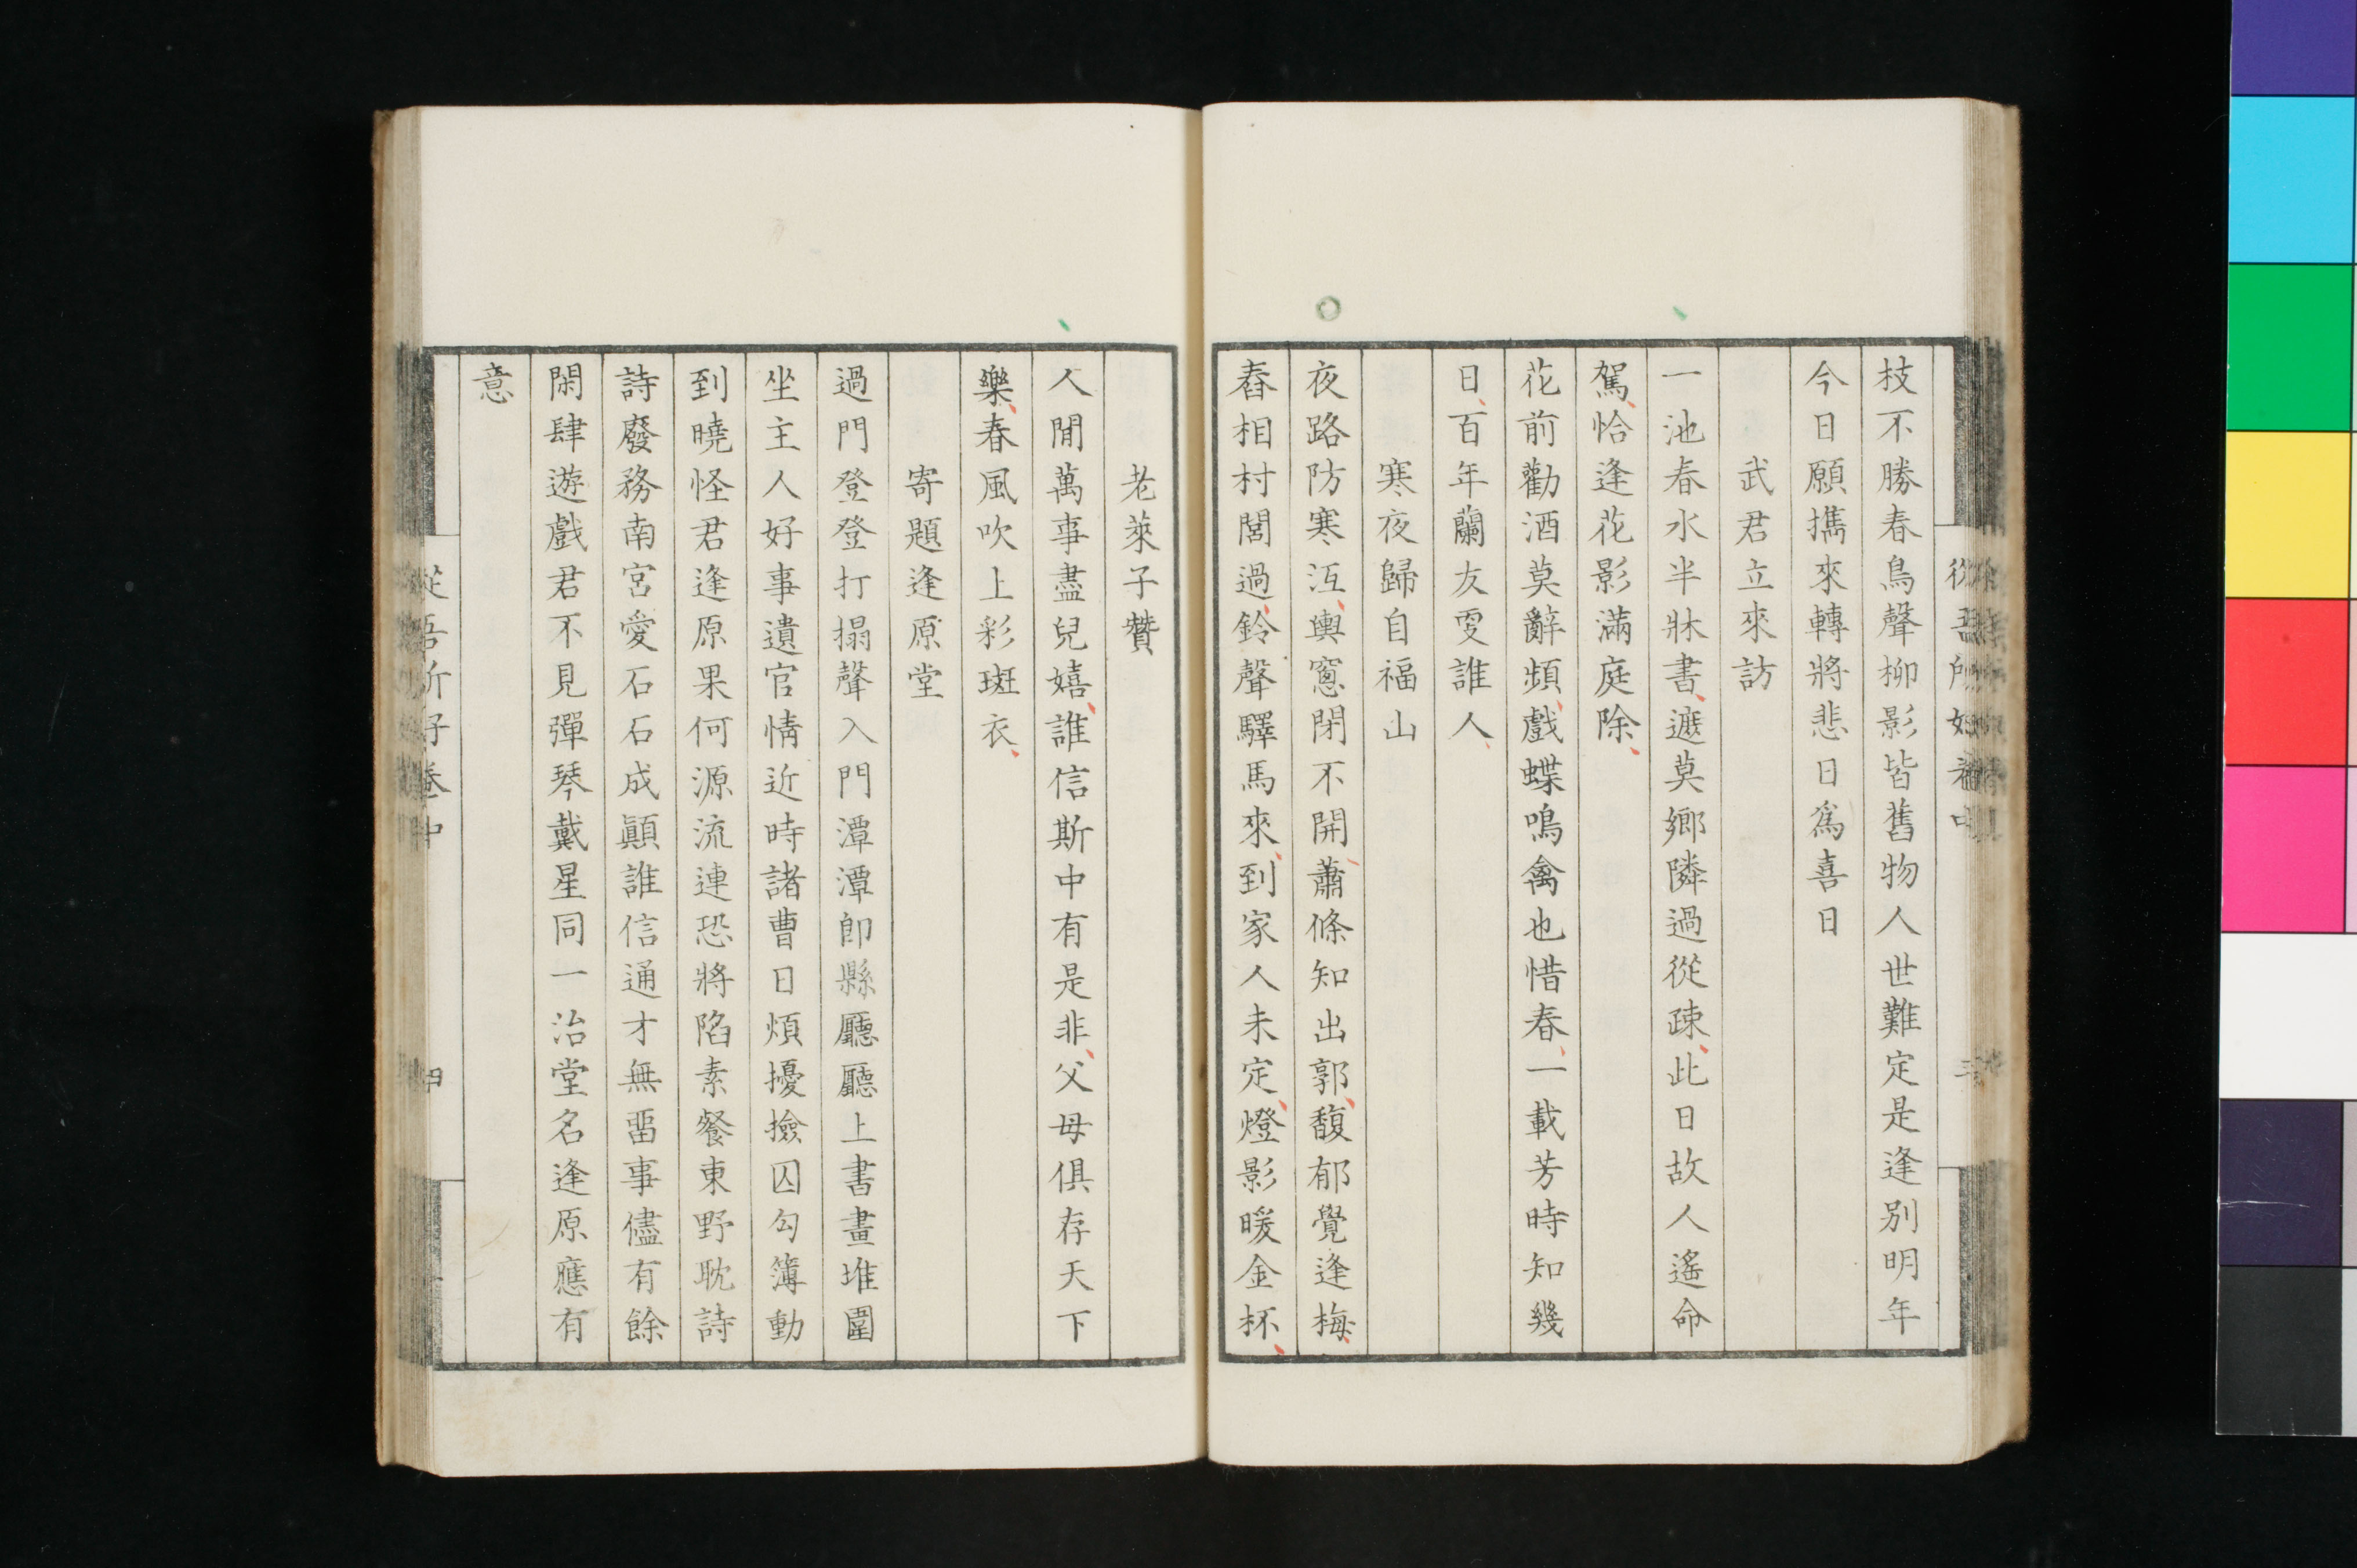 枝不勝春鳥聲柳影皆舊物人世難定是逢別明年
今日願攜來轉將悲日爲喜日
武君立來訪
一池春水半牀書遮莫鄉隣過從疎此日故人遙命
駕恰逢花影滿庭除
花前勸酒莫辭頻戲蝶鳴禽也惜春一載芳時知幾
日百年蘭友更誰人
寒夜歸自福山
夜路防寒冱輿窻閉不開蕭條知出郭馥郁覺逢梅
舂相村閭過鈴聲驛馬來到家人未定燈影暖金杯
老萊子贊
人間萬事盡兒嬉誰信斯中有是非父母俱存天下
樂春風吹上彩斑衣
寄題逢原堂
過門登登打搨聲入門潭潭卽縣廳廳上書畫堆圍
坐主人好事遺官情近時諸曹日煩擾撿囚勾簿動
到曉怪君逢原果何源流連恐將陷素餐東野耽詩
詩廢務南宮愛石石成顚誰信通才無畱事儘有餘
閑肆遊戲君不見彈琴戴星同一治堂名逢原應有
意
從吾所好卷中